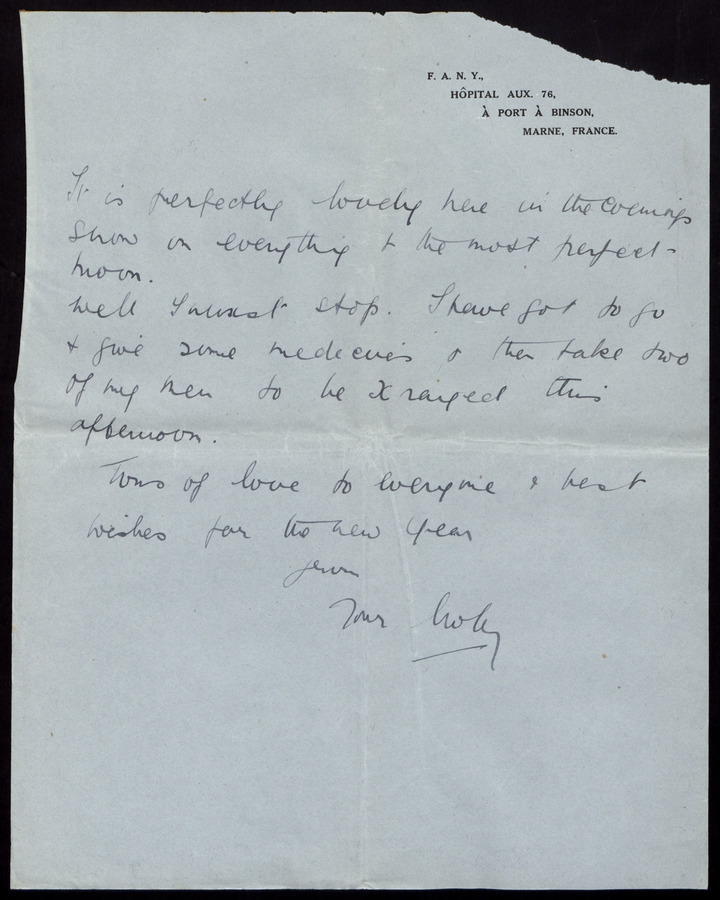 F. A. N. Y.,
HÔPITAL AUX. 76,
À PORT À BINSON,
MARNE, FRANCE.
It is perfectly lovely here in the evenings
snow on everything & the most perfect
moon.
Well I must stop. I have got to go
& give some medecines & then take two
of my men to be X rayed this
afternoon.
Tons of love to everyone & best
wishes for the new Year
from
Your